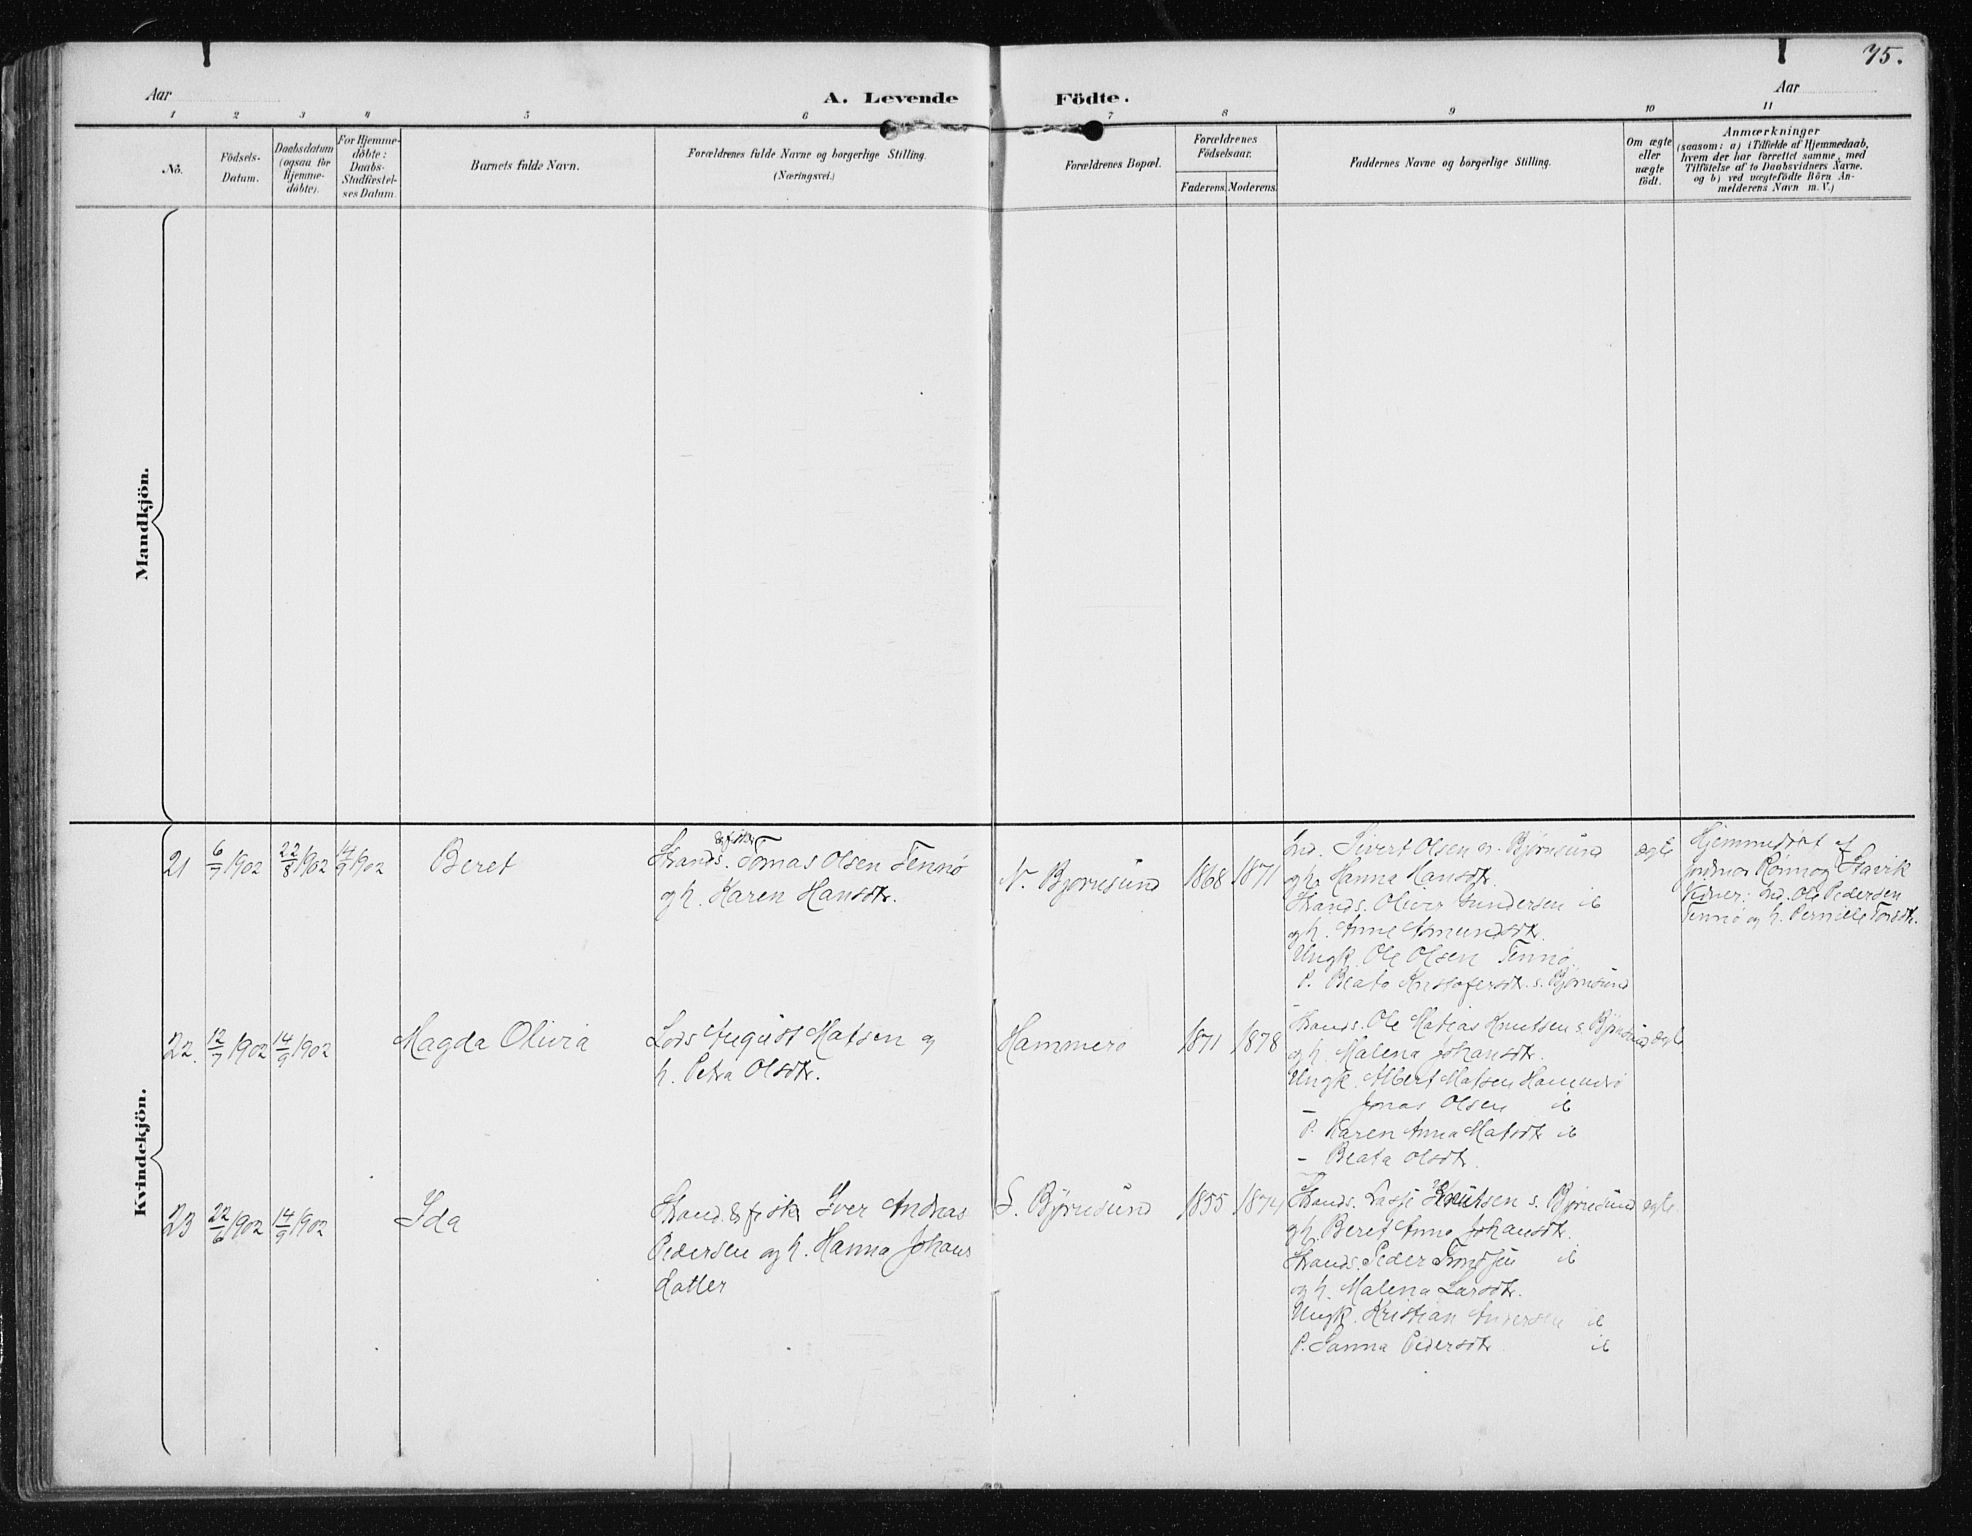 75.
Aar
A. Levende Födte.
Aar
1 2 3 4 5 6 7 8 9 10 11
No.
Födsels-
Datum.
Daabsdatum
(ogsaa for
Hjemme-
döbte).
For Hjemme-
döbte:
Daabs-
Stadfæstel-
ses Datum.
Barnets fulde Navn.
Forældrenes fulde Navne og borgerlige Stilling.
(Næringsvei.)
Forældrenes Bopæl.
Forældrenes
Födselsaar.
Faderens. Moderens.
Faddernes Navne og borgerlige Stilling.
Om ægte
eller
uægte
födt.
Anmærkninger
(saasom: a) i Tilfælde af Hjemmedaab,
hvem der har forrettet samme, med
Tilföielse af to Daabsvidners Navne.
og b) ved uægtefödte Börn An-
melderens Navn m. V.)
Mandkjön.
Kvindekjön.
21
6/7 1902
22/8 1902
14/9 1902
Beret
Strands. & fisker Tomas Olsen Tennø
og h. Karen Hansdtr.
N. Bjørnsund
1868
1871
Ind. Sivert Olsen n. Bjørnsund
og h. Hanna Hansdtr.
Strands. Oliver Gundersen ib
og h. Anne Amundsdtr.
Ungk. Ole Olsen Tennø.
P. Beata Kristofersdtr. s. Bjørnsund
ægte
Hjemmedøbt af
Jordmor Rønnog Stavik
Vidner: Ind. Ole Pedersen
Tennø og h. Pernille
22.
12/7 1902
14/9 1902
Magda Olivia
Lods August Matsen og
h. Petra Olsdtr.
Hammerø
1871
1878
Strands. Ole Matias Knutsen s. Bjørnsund
og h. Malena Johansdtr.
Ungk. Albert Matsen Hammerø
— Jonas Olsen ib
P. Karen Anna Matsdtr ib
— Beata Olsdtr.
ægte
23
22/6 1902
14/9 1902
Ida
Strand. & fisker Iver Andreas
Pedersen og h. Hanna Johans
datter
S. Bjørnsund
1855
1874
Strands. Knutsen s. Bjørnsund
og h. Beret Anna Johansdtr.
Strands. Peder ib
og h. Malena Larsdtr.
Ungk. Kristian Andersen ib
P. Sanna Pedersdtr. ib
ægte